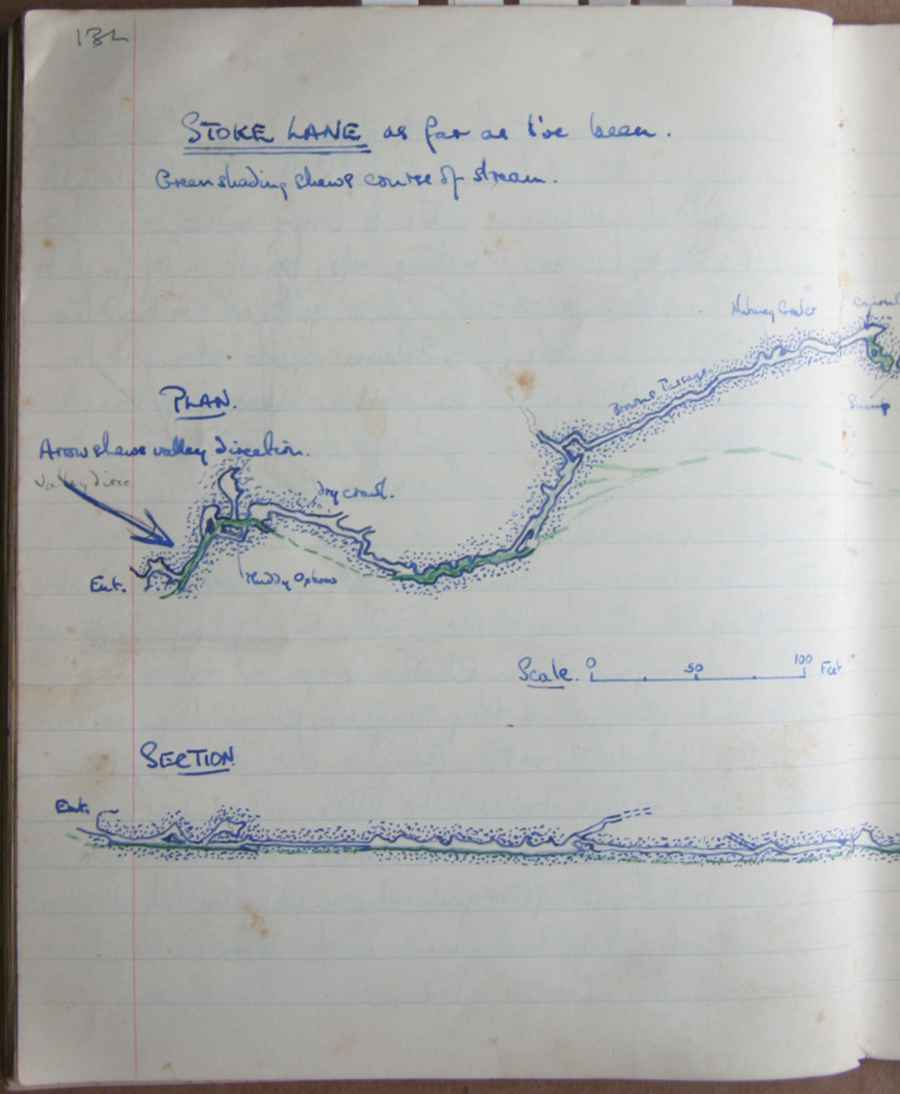 132
STOKE LANE as far as I've been.
Green shading shews course of stream.
PLAN.
Arrow shews valley direction.
valley direc
Dry crawl.
Ent.
Muddy Oxbow
Browne Passage
Sump
Scale. 0 50 100 Feet
SECTION
Ent.